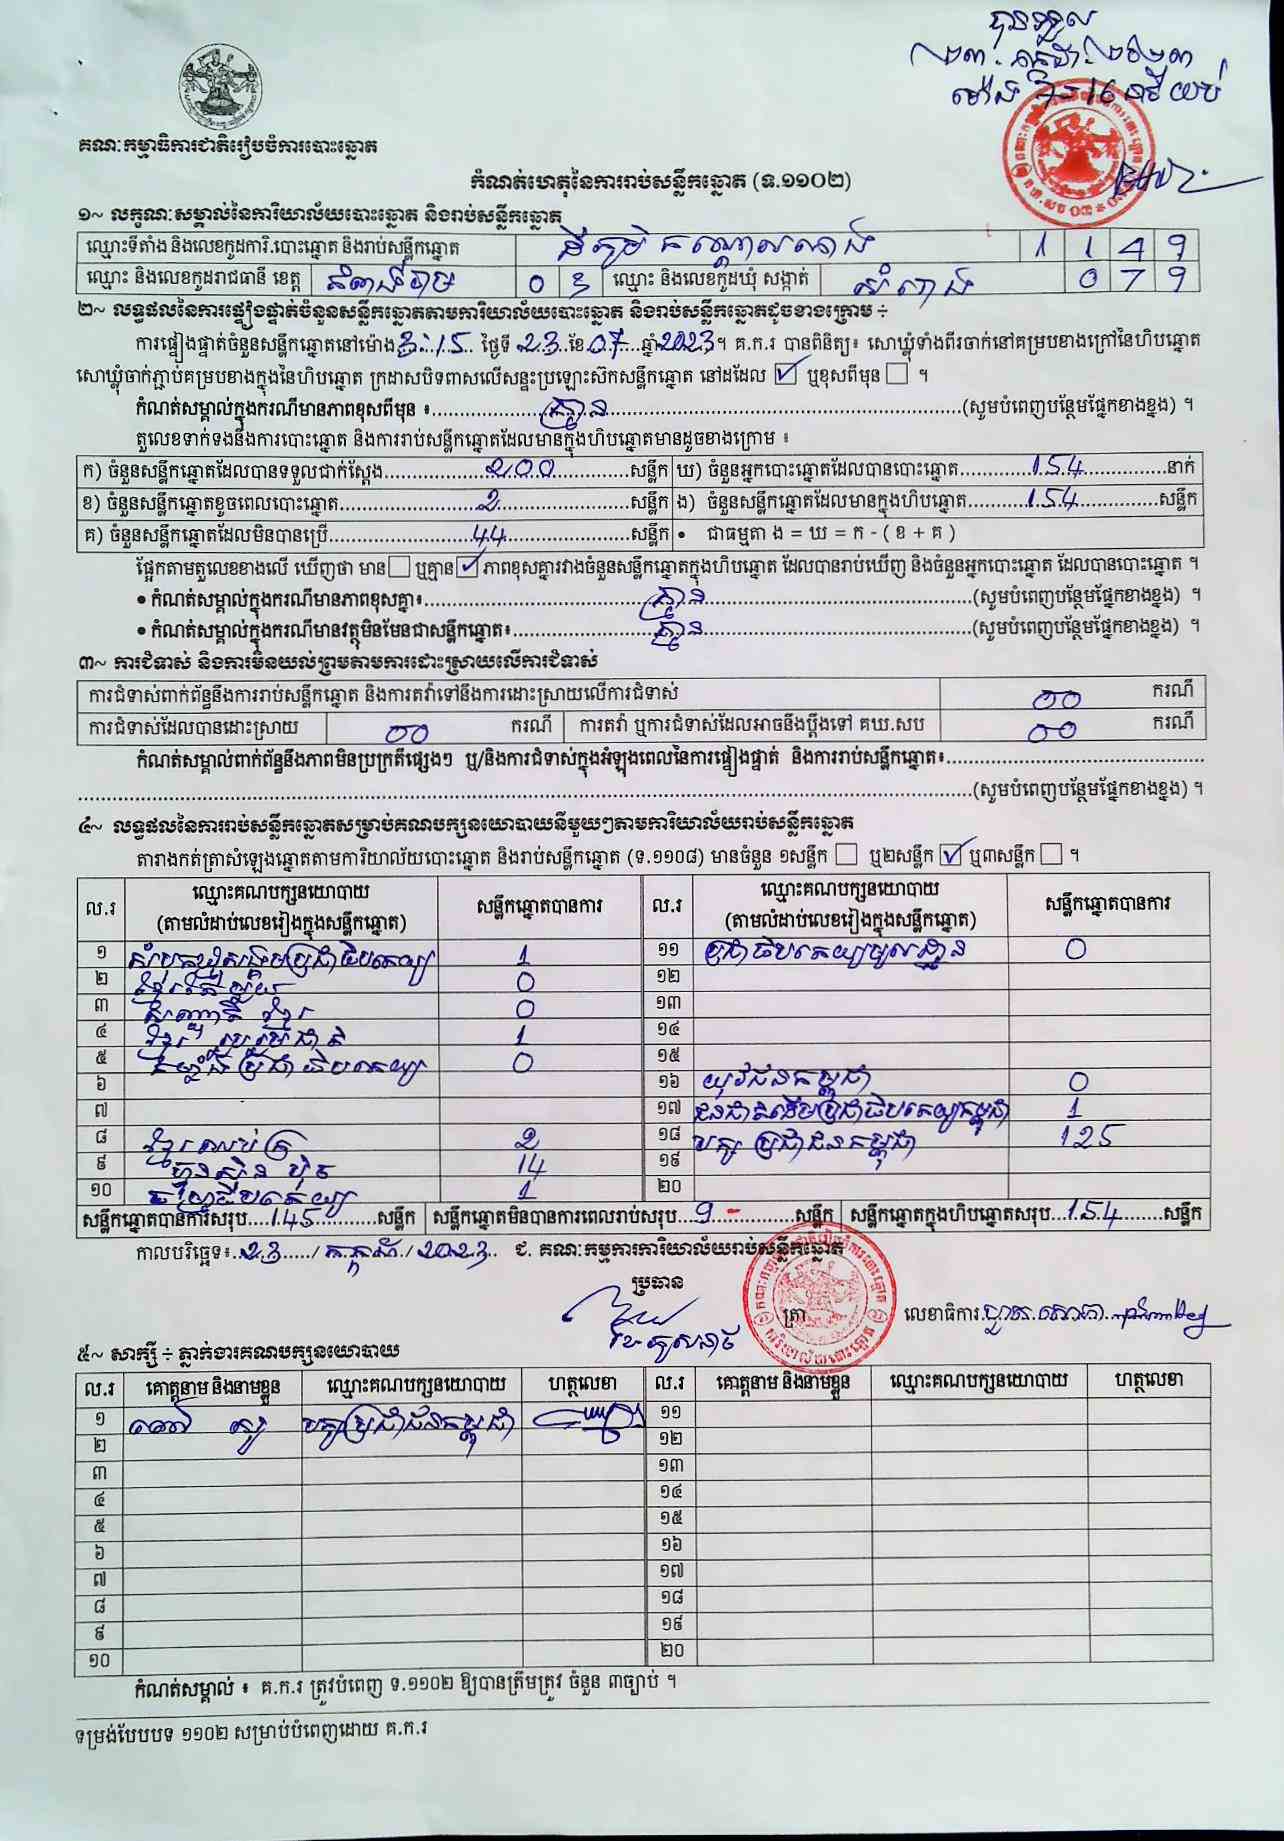 បានទទួល
គណៈកម្មាធិការជាតិរៀបចំការបោះឆ្នោត
កំណត់ហេតុនៃការរាប់សន្លឹកឆ្នោត (ទ.១១០២)
១~ លក្ខណៈសម្គាល់នៃការិយាល័យបោះឆ្នោត និងរាប់សន្លឹកឆ្នោត
ឈ្មោះទីតាំង និងលេខកូដការិ.បោះឆ្នោត និងរាប់សន្លឹកឆ្នោត 1 1 4 9
ឈ្មោះ និងលេខកូដរាជធានី ខេត្ត កំពង់ចាម 0 3 ឈ្មោះ និងលេខកូដឃុំ សង្កាត់ 0 7 9
២~ លទ្ធផលនៃការផ្ទៀងផ្ទាត់ចំនួនសន្លឹកឆ្នោតតាមការិយាល័យបោះឆ្នោត និងរាប់សន្លឹកឆ្នោតដូចខាងក្រោម ÷
ការផ្ទៀងផ្ទាត់ចំនួនសន្លឹកឆ្នោតនៅម៉ោង 3:15 ថ្ងៃទី 23 ខែ 07 ឆ្នាំ 2023។ គ.ក.រ បានពិនិត្យ៖ សោឃ្លុំទាំងពីរចាក់នៅគម្របខាងក្រៅនៃហិបឆ្នោត
សោឃ្លុំចាក់ភ្ជាប់គម្របខាងក្នុងនៃហិបឆ្នោត ក្រដាសបិទពាសលើសន្ទះប្រឡោះស៊កសន្លឹកឆ្នោត នៅដដែល ☑ ឬខុសពីមុន ☐ ។
កំណត់សម្គាល់ក្នុងករណីមានភាពខុសពីមុន ៖ គ្មាន (សូមបំពេញបន្ថែមផ្នែកខាងខ្នង) ។
តួលេខទាក់ទងនឹងការបោះឆ្នោត និងការរាប់សន្លឹកឆ្នោតដែលមានក្នុងហិបឆ្នោតមានដូចខាងក្រោម ៖
ក) ចំនួនសន្លឹកឆ្នោតដែលបានទទួលជាក់ស្តែង 200 សន្លឹក ឃ) ចំនួនអ្នកបោះឆ្នោតដែលបានបោះឆ្នោត 154 នាក់
ខ) ចំនួនសន្លឹកឆ្នោតខូចពេលបោះឆ្នោត 2 សន្លឹក ង) ចំនួនសន្លឹកឆ្នោតដែលមានក្នុងហិបឆ្នោត 154 សន្លឹក
គ) ចំនួនសន្លឹកឆ្នោតដែលមិនបានប្រើ 44 សន្លឹក • ជាធម្មតា ង = ឃ = ក - ( ខ + គ )
ផ្អែកតាមតួលេខខាងលើ ឃើញថា មាន ☐ ឬគ្មាន ☑ ភាពខុសគ្នារវាងចំនួនសន្លឹកឆ្នោតក្នុងហិបឆ្នោត ដែលបានរាប់ឃើញ និងចំនួនអ្នកបោះឆ្នោត ដែលបានបោះឆ្នោត ។
• កំណត់សម្គាល់ក្នុងករណីមានភាពខុសគ្នា៖ គ្មាន (សូមបំពេញបន្ថែមផ្នែកខាងខ្នង) ។
• កំណត់សម្គាល់ក្នុងករណីមានវត្ថុមិនមែនជាសន្លឹកឆ្នោត៖ គ្មាន (សូមបំពេញបន្ថែមផ្នែកខាងខ្នង) ។
៣~ ការជំទាស់ និងការមិនយល់ព្រមតាមការដោះស្រាយលើការជំទាស់
ការជំទាស់ពាក់ព័ន្ធនឹងការរាប់សន្លឹកឆ្នោត និងការតវ៉ាទៅនឹងការដោះស្រាយលើការជំទាស់ 00 ករណី
ការជំទាស់ដែលបានដោះស្រាយ 00 ករណី ការតវ៉ា ឬការជំទាស់ដែលអាចនឹងប្តឹងទៅ គឃ.សប 00 ករណី
កំណត់សម្គាល់ពាក់ព័ន្ធនឹងភាពមិនប្រក្រតីផ្សេងៗ ឬ/និងការជំទាស់ក្នុងអំឡុងពេលនៃការផ្ទៀងផ្ទាត់ និងការរាប់សន្លឹកឆ្នោត៖
(សូមបំពេញបន្ថែមផ្នែកខាងខ្នង) ។
៤~ លទ្ធផលនៃការរាប់សន្លឹកឆ្នោតសម្រាប់គណបក្សនយោបាយនីមួយៗតាមការិយាល័យរាប់សន្លឹកឆ្នោត
តារាងកត់ត្រាសំឡេងឆ្នោតតាមការិយាល័យបោះឆ្នោត និងរាប់សន្លឹកឆ្នោត (ទ.១១០៨) មានចំនួន ១សន្លឹក ☐ ឬ២សន្លឹក ☑ ឬ៣សន្លឹក ☐ ។
ល.រ ឈ្មោះគណបក្សនយោបាយ សន្លឹកឆ្នោតបានការ ល.រ ឈ្មោះគណបក្សនយោបាយ សន្លឹកឆ្នោតបានការ
(តាមលំដាប់លេខរៀងក្នុងសន្លឹកឆ្នោត) (តាមលំដាប់លេខរៀងក្នុងសន្លឹកឆ្នោត)
១ 1 ១១ ប្រជាធិបតេយ្យមូលដ្ឋាន 0
២ 0 ១២
៣ 0 ១៣
៤ ខ្មែរ រួបរួមជាតិ 1 ១៤
៥ កម្លាំងប្រជាធិបតេយ្យ 0 ១៥
៦ ១៦ យុវជនកម្ពុជា 0
៧ ១៧ 1
៨ 2 ១៨ បក្ស ប្រជាជនកម្ពុជា 125
៩ ហ៊្វុនស៊ិនប៉ិច 14 ១៩
១០ 1 ២០
សន្លឹកឆ្នោតបានការសរុប 145 សន្លឹក សន្លឹកឆ្នោតមិនបានការពេលរាប់សរុប 9 សន្លឹក សន្លឹកឆ្នោតក្នុងហិបឆ្នោតសរុប 154 សន្លឹក
កាលបរិច្ឆេទ៖ 23 / កក្កដា / 2023 ជ. គណៈកម្មការការិយាល័យរាប់សន្លឹកឆ្នោត
ប្រធាន
ត្រា លេខាធិការ
៥~ សាក្សី ÷ ភ្នាក់ងារគណបក្សនយោបាយ
ល.រ គោត្តនាម និងនាមខ្លួន ឈ្មោះគណបក្សនយោបាយ ហត្ថលេខា ល.រ គោត្តនាម និងនាមខ្លួន ឈ្មោះគណបក្សនយោបាយ ហត្ថលេខា
១ បក្សប្រជាជនកម្ពុជា ១១
២ ១២
៣ ១៣
៤ ១៤
៥ ១៥
៦ ១៦
៧ ១៧
៨ ១៨
៩ ១៩
១០ ២០
កំណត់សម្គាល់ ៖ គ.ក.រ ត្រូវបំពេញ ទ.១១០២ ឱ្យបានត្រឹមត្រូវ ចំនួន ៣ច្បាប់ ។
ទម្រង់បែបបទ ១១០២ សម្រាប់បំពេញដោយ គ.ក.រ